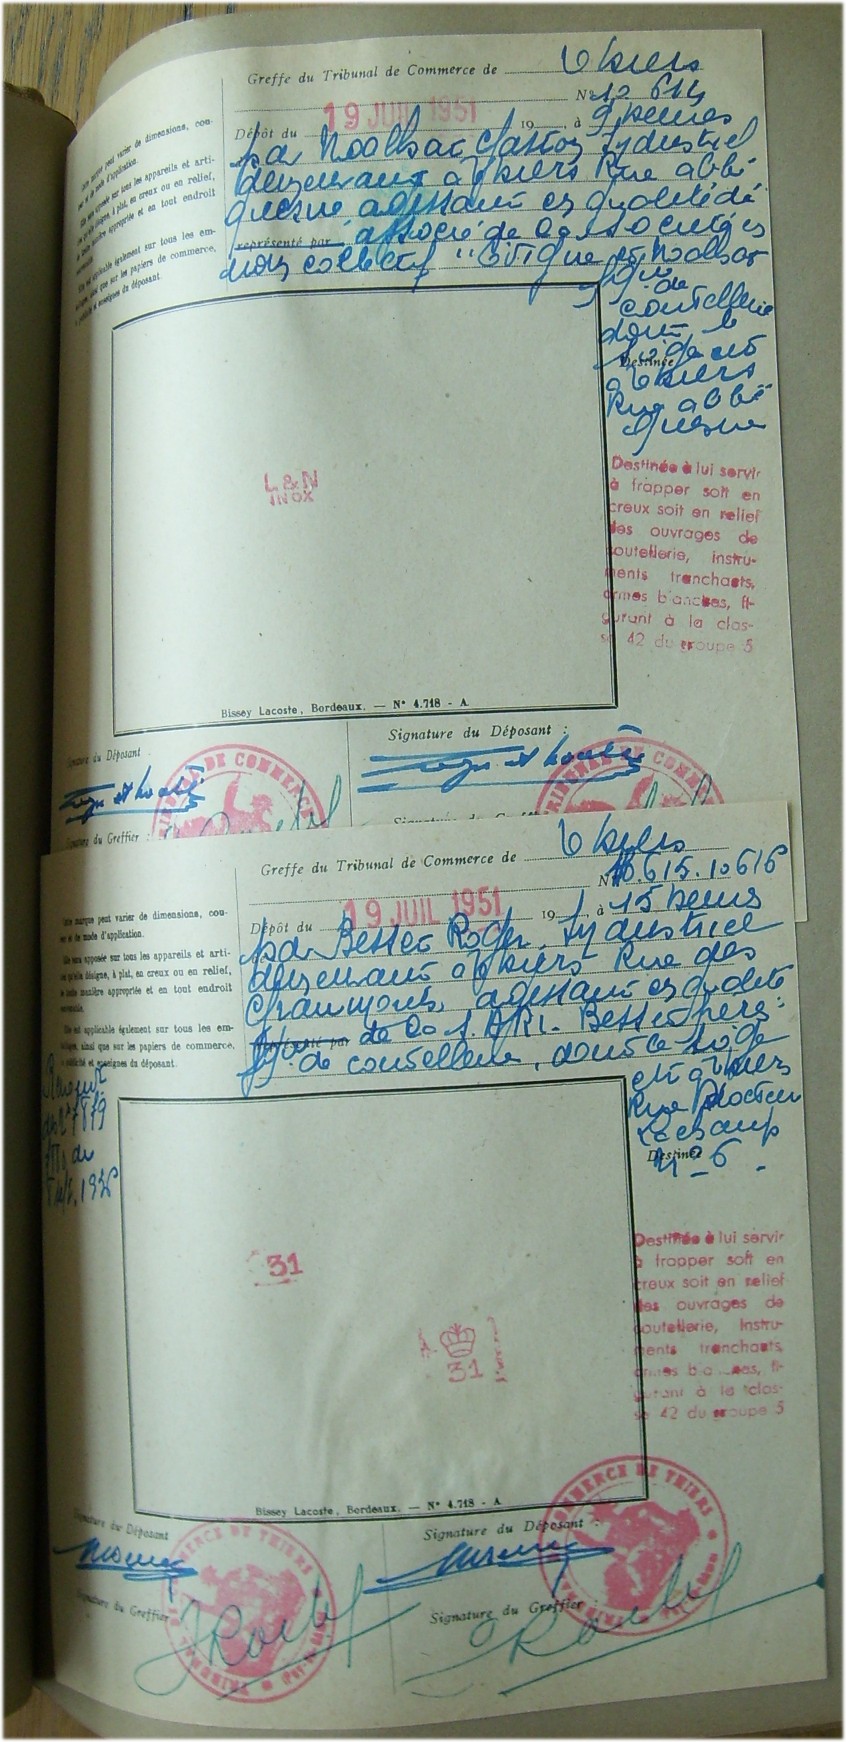 Greffe du Tribunal de Commerce de Thiers
N° 10 614
Dépôt du 19 JUIL 1951 19 , à 9 heures
par Noalhac Gaston Industriel
demeurant à Thiers Rue abbé
agissant en qualité
représenté par associé de la société en
nom collectif et Noalhac
de
coutellerie
dont le
siège est
Destinée
à Thiers
Rue abbé
Cette marque peut varier de dimensions, cou-
et de mode d'application.
Elle sera apposée sur tous les appareils et arti-
qu'elle désigne, à plat, en creux ou en relief,
manière appropriée et en tout endroit
Elle est applicable également sur tous les em-
ainsi que sur les papiers de commerce,
et enseignes du déposant.
L & N
INOX
Destinée à lui servir
à frapper soit en
creux soit en relief
des ouvrages de
coutellerie, instru-
ments tranchants,
armes blanches, fi-
gurant à la clas-
se 42 du groupe 5
Bissey Lacoste, Bordeaux. — N° 4.718 - A
Signature du Déposant
Signature du Déposant :
TRIBUNAL DE COMMERCE
TRIBUNAL DE COMMERCE
Signature du Greffier :
Greffe du Tribunal de Commerce de Thiers
N° 10.615.10616
Dépôt du 19 JUIL 1951 19 , à 15 heures
par Besset Roger, Industriel
demeurant à Thiers Rue des
agissant en qualité
représenté par de la S.A.R.L. Besset
de coutellerie, dont le siège
est à Thiers
Rue Docteur
Lachamp
Destinée
n° 6
Cette marque peut varier de dimensions, cou-
et de mode d'application.
Elle sera apposée sur tous les appareils et arti-
qu'elle désigne, à plat, en creux ou en relief,
de toute manière appropriée et en tout endroit
Elle est applicable également sur tous les em-
ballages, ainsi que sur les papiers de commerce,
publicité et enseignes du déposant.
31
31
Destinée à lui servir
à frapper soit en
creux soit en relief
des ouvrages de
coutellerie, instru-
ments tranchants,
armes blanches, fi-
gurant à la clas-
se 42 du groupe 5
Bissey Lacoste, Bordeaux. — N° 4.718 - A
Signature du Déposant
Signature du Déposant :
TRIBUNAL DE COMMERCE DE THIERS
TRIBUNAL DE COMMERCE DE THIERS
Signature du Greffier
Signature du Greffier :